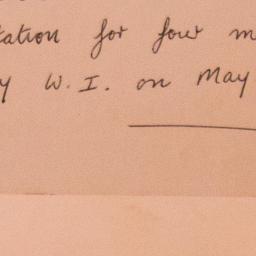 tation for four m
y W.I. on May